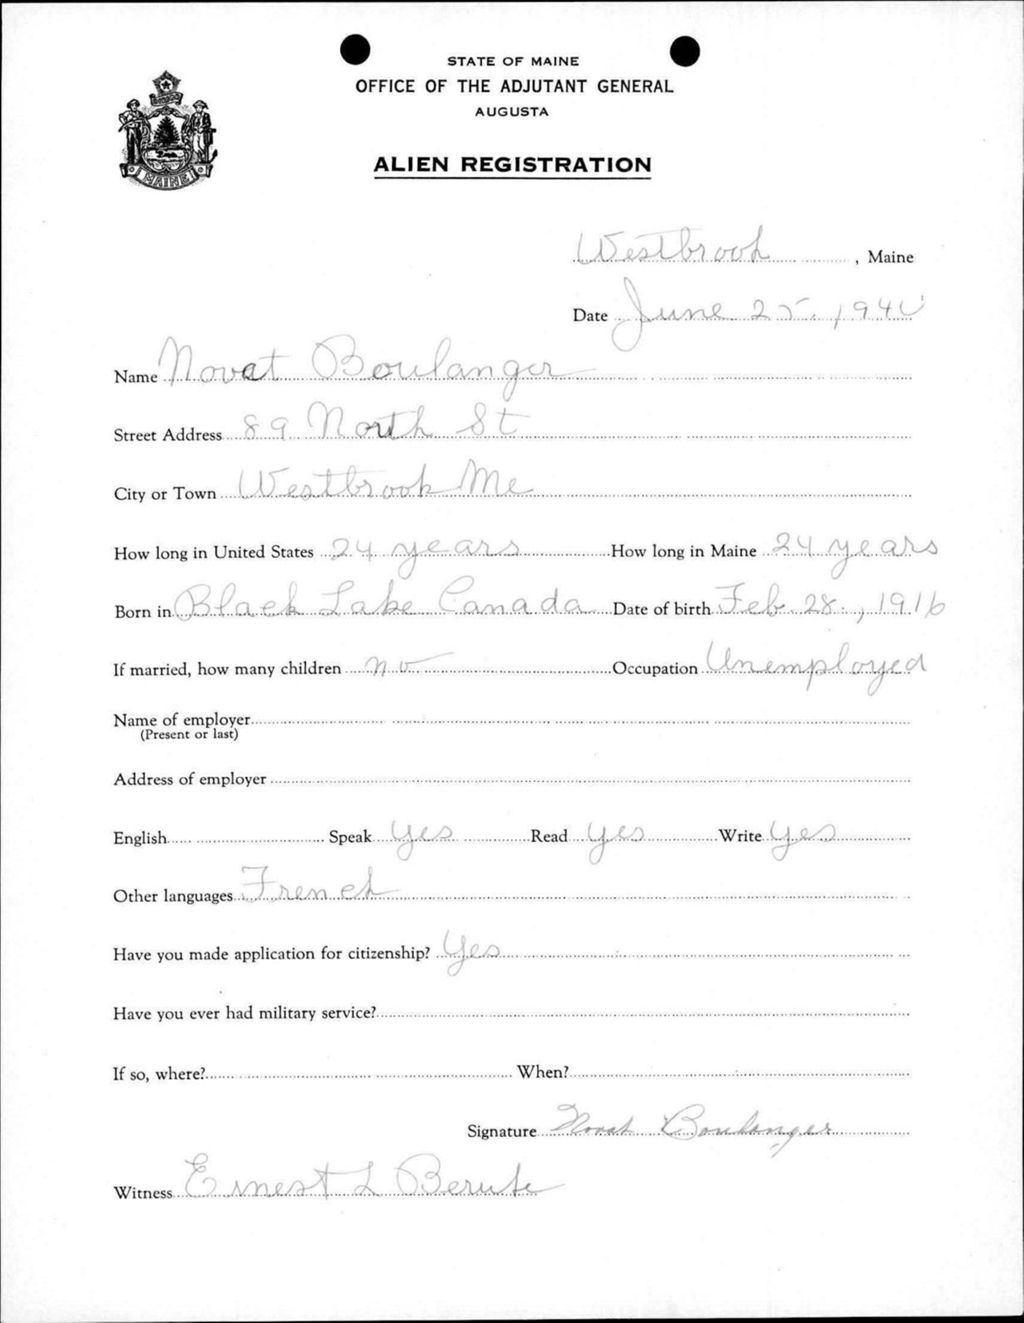 STATE OF MAINE
OFFICE OF THE ADJUTANT GENERAL
AUGUSTA
ALIEN REGISTRATION
MAINE
Westbrook, Maine
Date June 25, 1940
Name Novat Boulanger
Street Address 89 North St
City or Town Westbrook Me
How long in United States 24 years How long in Maine 24 years
Born in Black Lake Canada Date of birth Feb. 28, 1916
If married, how many children no Occupation Unemployed
Name of employer
(Present or last)
Address of employer
English Speak Yes Read Yes Write Yes
Other languages French
Have you made application for citizenship? Yes
Have you ever had military service?
If so, where? When?
Signature Novat Boulanger
Witness Ernest L Berube